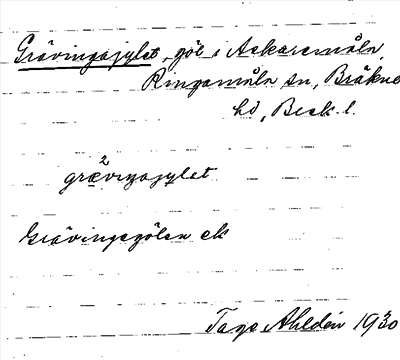 Grävingajylet, göl i Askaremåla,
Ringamåla sn, Bräkne
hd, Blek. l.
grævιŋajylet
Grävingegölen ek
Tage Ahldén 1930